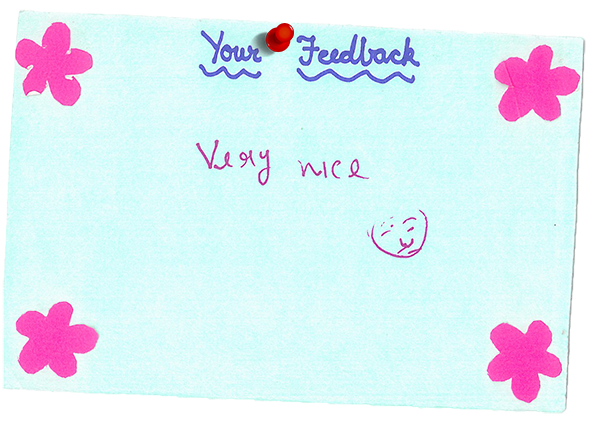 Your Feedback
Very nice